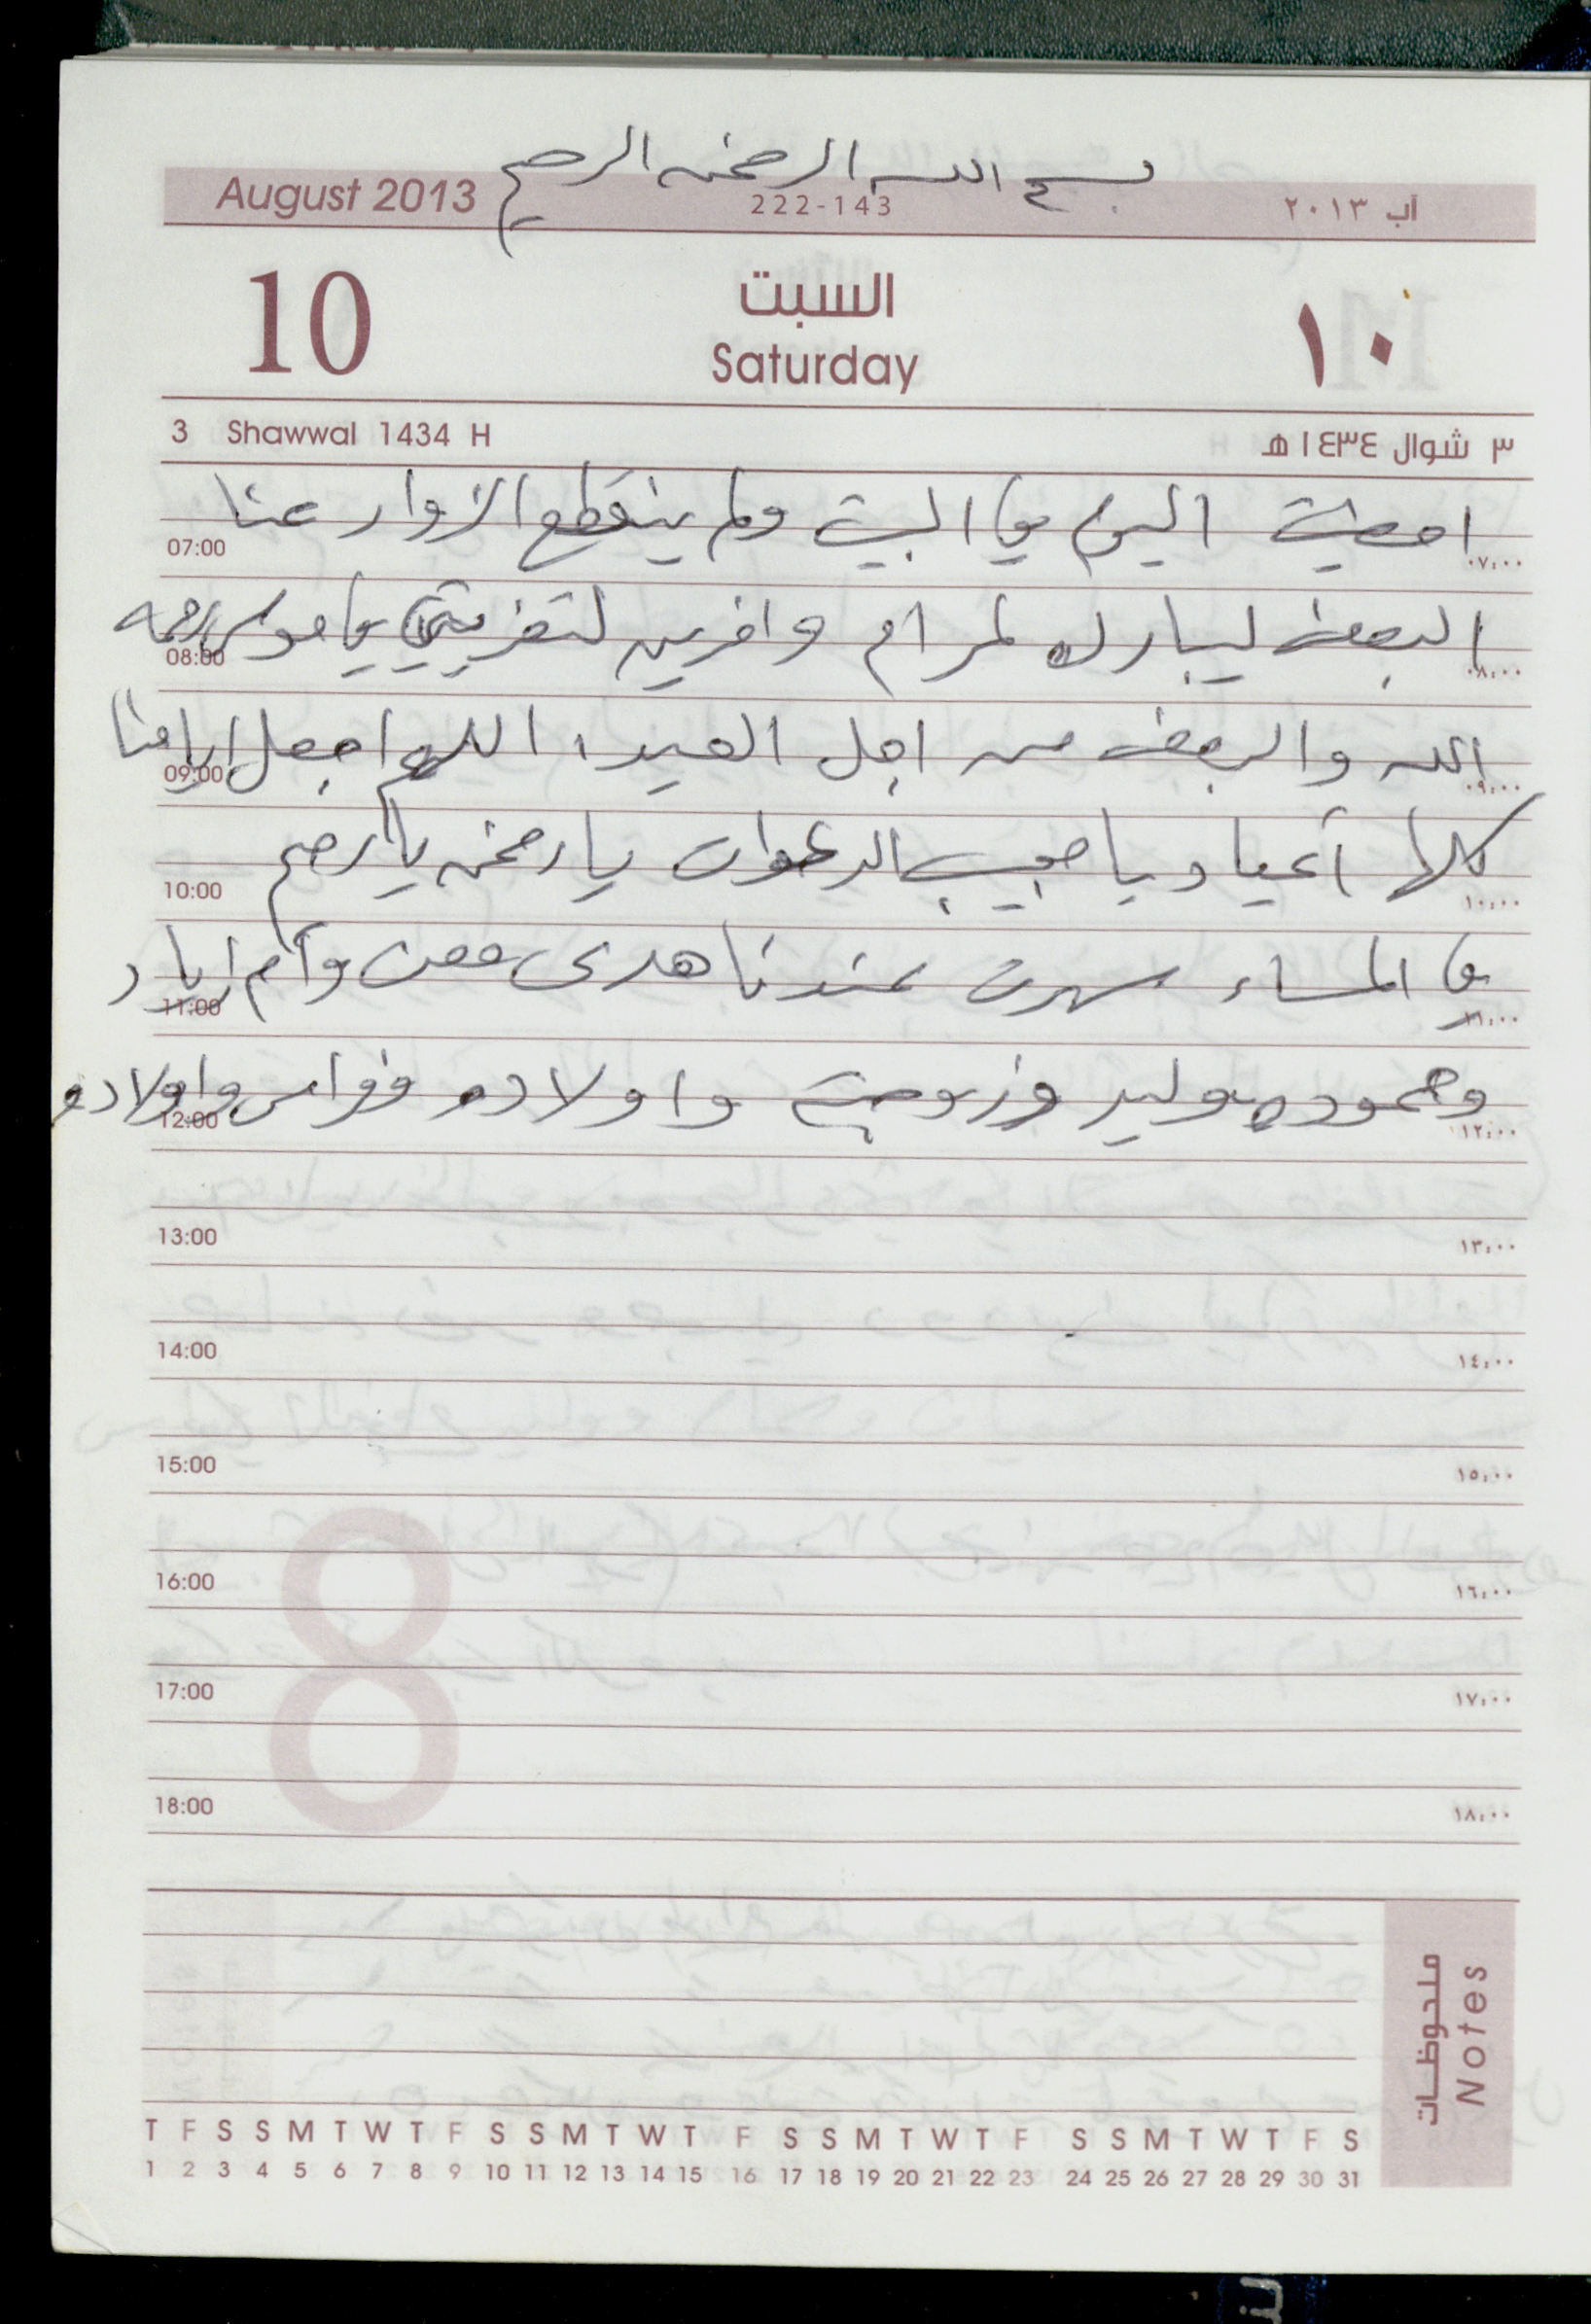 بسم الله الرحمن الرحيم
August 2013 222-143 آب ٢٠١٣
10 السبت ١٠
Saturday
3 Shawwal 1434 H ٣ شوال ١٤٣٤ هـ
امضيت اليوم في البيت ولم ينقطع الزوار عنا
07:00 ٠٧:٠٠
البعض ليبارك لمرام وافرين لتعزيتي في موسى رحمه
08:00 ٠٨:٠٠
الله والبعض من اجل العيد، اللهم اجعل ايامنا
09:00 ٠٩:٠٠
كلها أعياد يا مجيب الدعوات يا رحمن يا رحيم
10:00 ١٠:٠٠
في المساء سهرت عندنا هدى معن وأم زياد
11:00 ١١:٠٠
وحموده وليد وزوجته واولاده فواس واولاده
12:00 ١٢:٠٠
13:00 ١٣:٠٠
14:00 ١٤:٠٠
15:00 ١٥:٠٠
16:00 ١٦:٠٠
17:00 ١٧:٠٠
18:00 ١٨:٠٠
8
ملحوظات
Notes
T F S S M T W T F S S M T W T F S S M T W T F S S M T W T F S
1 2 3 4 5 6 7 8 9 10 11 12 13 14 15 16 17 18 19 20 21 22 23 24 25 26 27 28 29 30 31